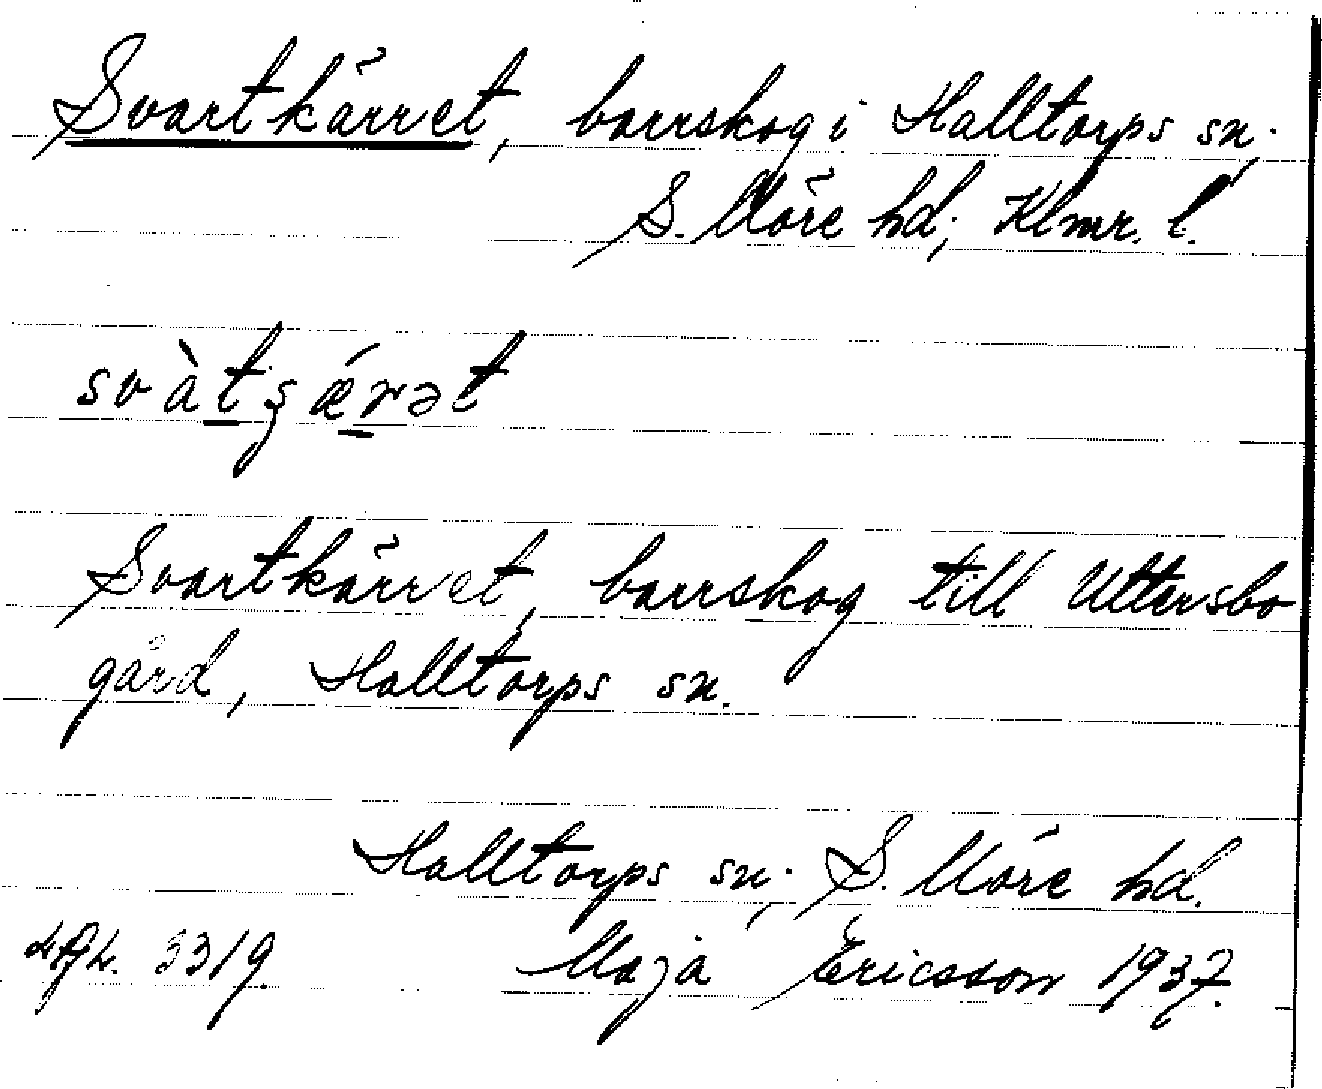 Svartkärret, barrskog i Halltorps sn,
S. Möre hd, Klmr. l.
svàtʂǽrət
Svartkärret, barrskog till Uttersbo
gård, Halltorps sn.
Halltorps sn, S. Möre hd.
3319. Maja Ericsson 1937.